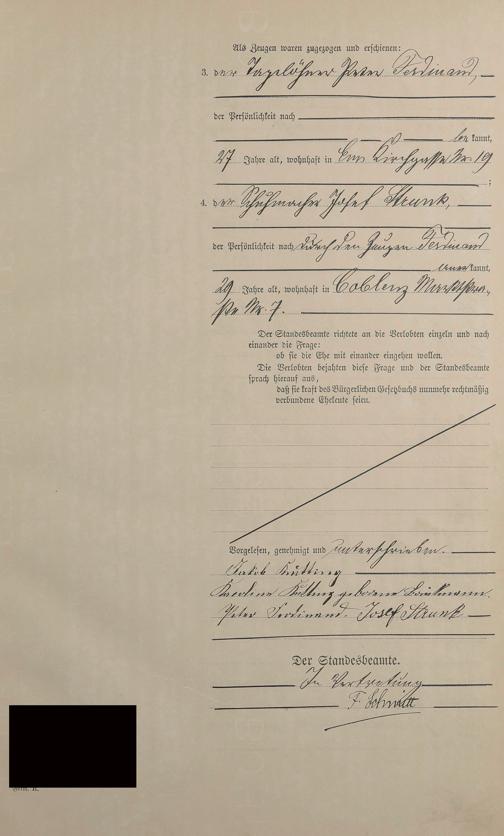 Als Zeugen waren zugezogen und erschienen:
3. der Tagelöhner Peter Ferdinand,
der Persönlichkeit nach
be kannt,
27 Jahre alt, wohnhaft in Ems Kirchgasse Nr 19
;
4. der Schuhmacher Josef Strunk,
der Persönlichkeit nach durch den Zeugen Ferdinand
aner kannt,
29 Jahre alt, wohnhaft in Coblenz Marktstra-
ße Nr. 7.
Der Standesbeamte richtete an die Verlobten einzeln und nach
einander die Frage:
ob sie die Ehe mit einander eingehen wollen.
Die Verlobten bejahten diese Frage und der Standesbeamte
sprach hierauf aus,
daß sie kraft des Bürgerlichen Gesetzbuchs nunmehr rechtmäßig
verbundene Eheleute seien.
Vorgelesen, genehmigt und unterschrieben.
Jakob
geborene
Peter Ferdinand. Josef Strunk
Der Standesbeamte.
In Vertretung
F. Schmitt